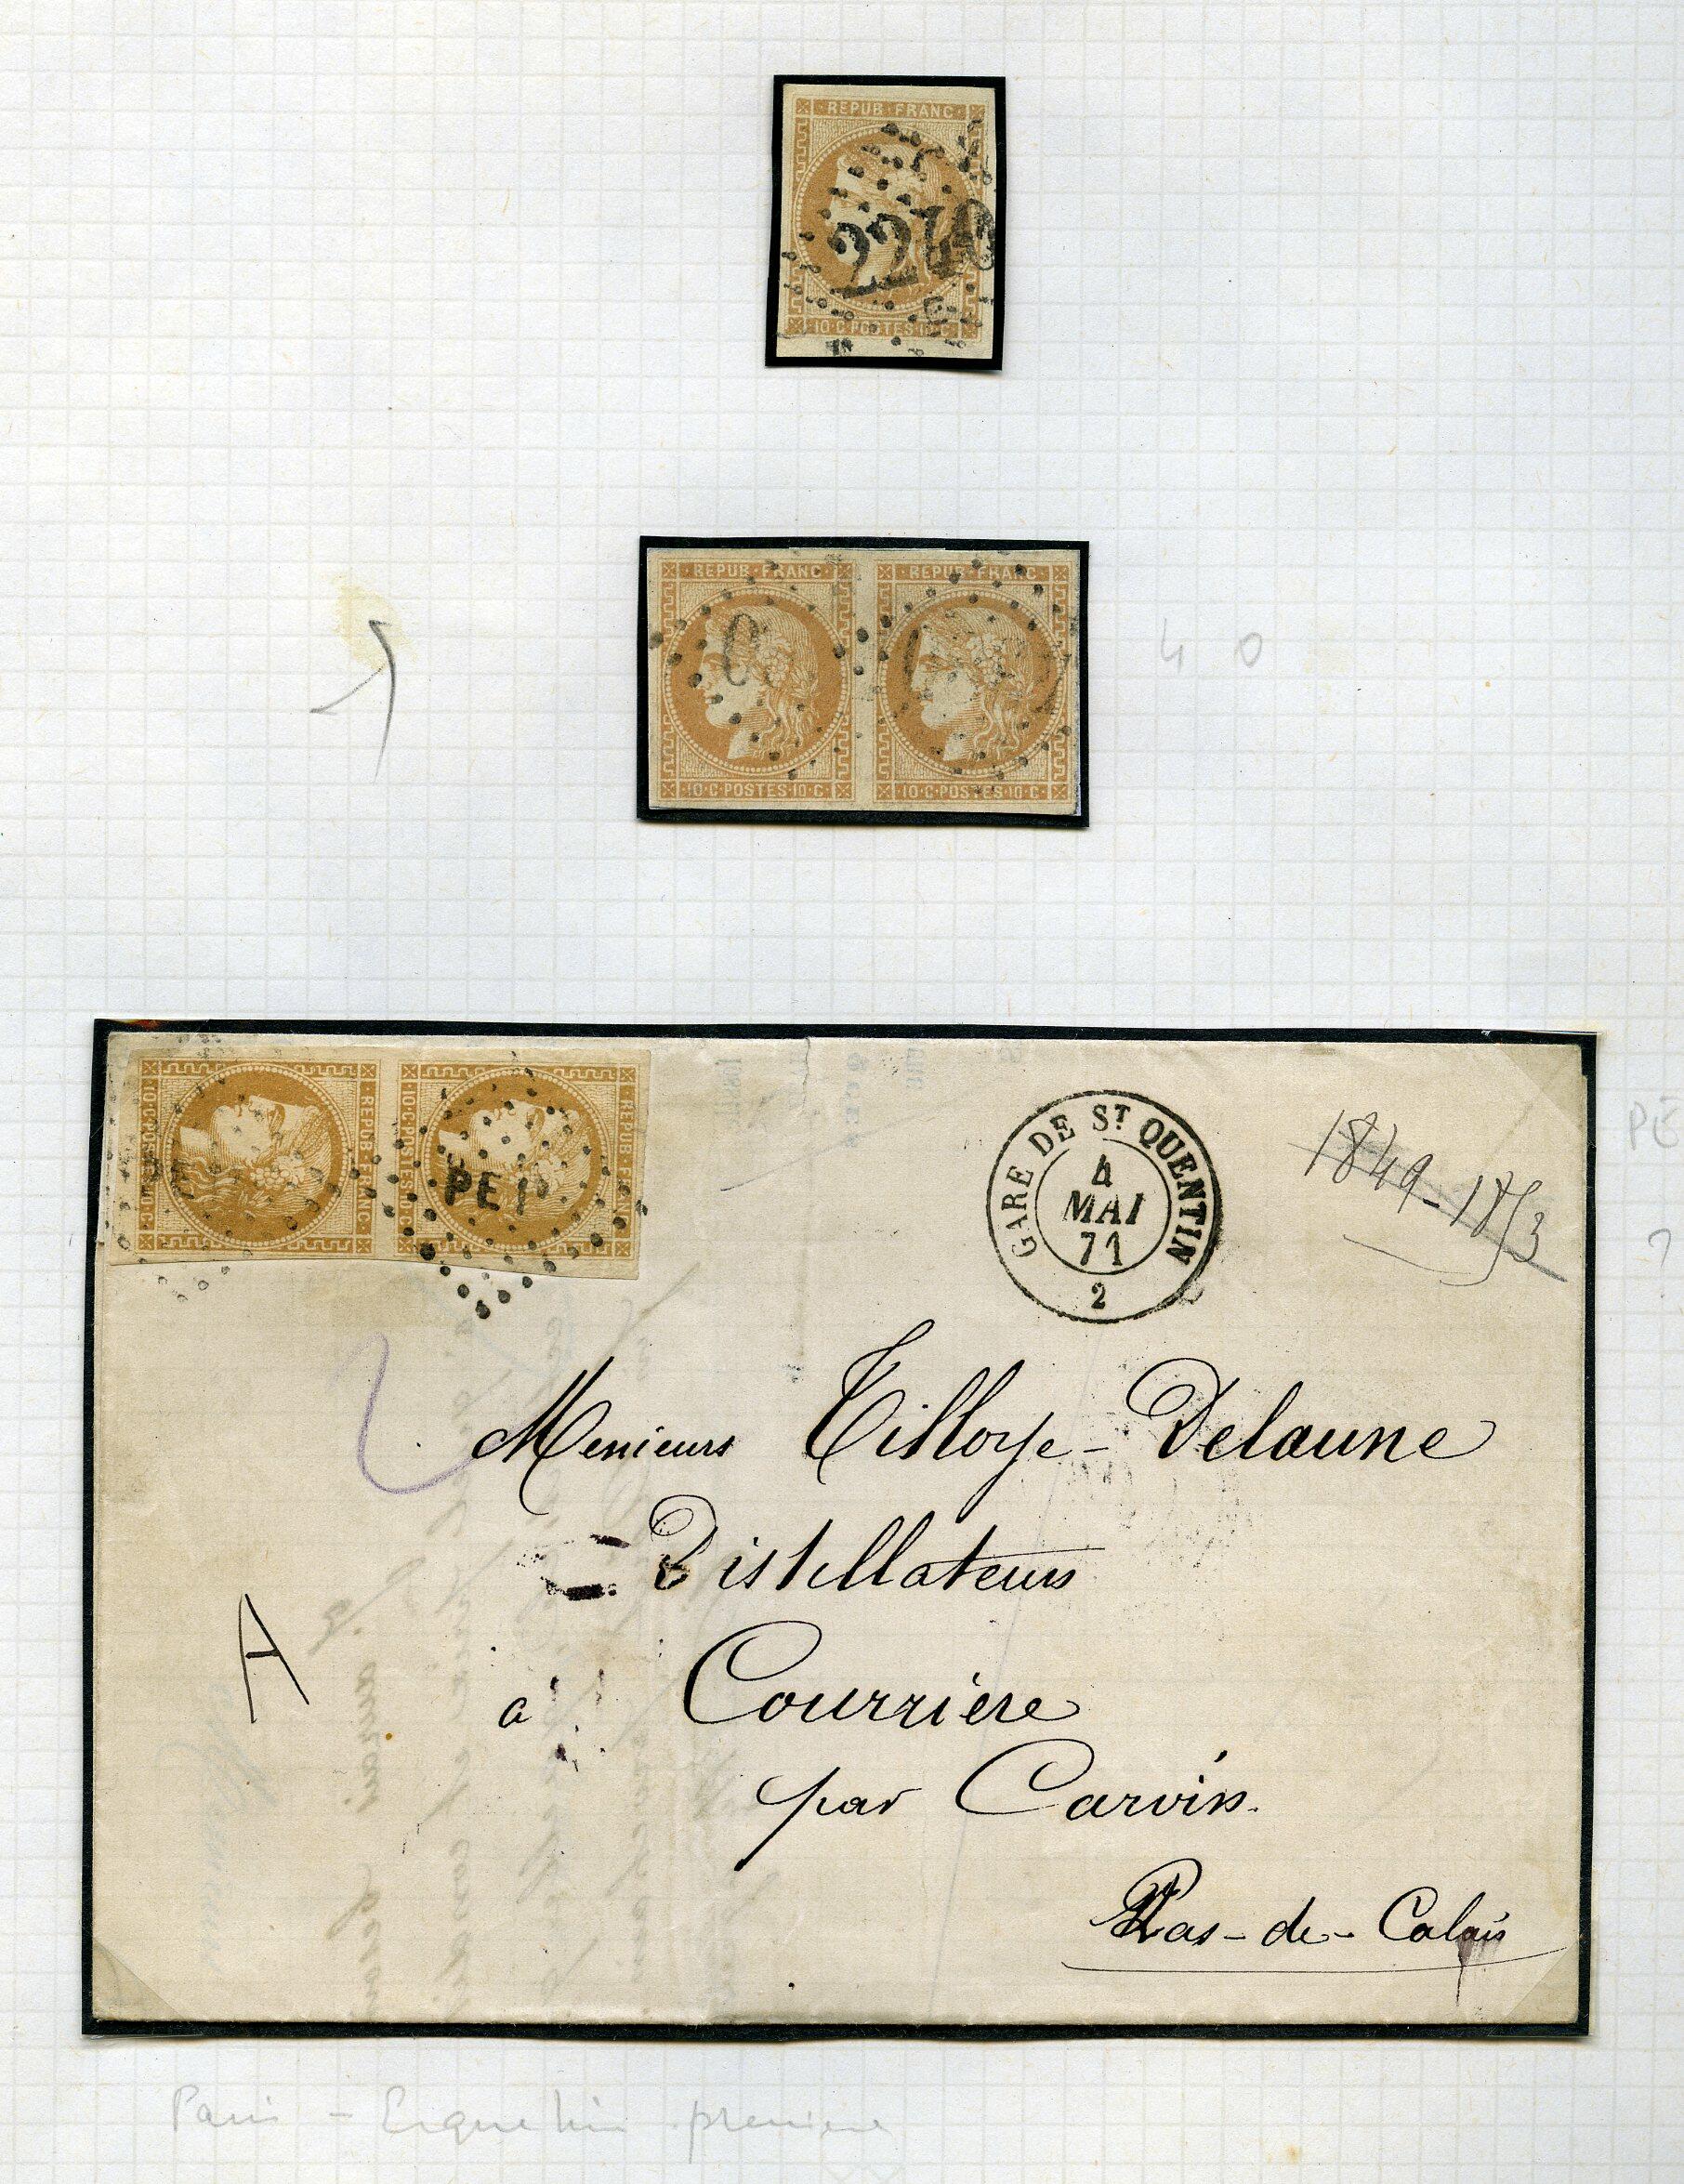 REPUB·FRANC
2240
10·C·POSTES·10·C
REPUB·FRANC·
REPUB·FRANC·
10·C·POSTES·10·C·
10·C·POSTES·10·C·
4 0
10·C·POSTES·10·C·
REPUB·FRANC·
10·C·POSTES·10·C·
REPUB·FRANC·
PE 1°
GARE DE ST QUENTIN
4
MAI
71
2
1849-1853
PE
?
2
Messieurs Tilloye-Delaune
Distillateurs
A
à Courriere
par Carvin.
Pas-de-Calais
Paris - Erquelin premiere